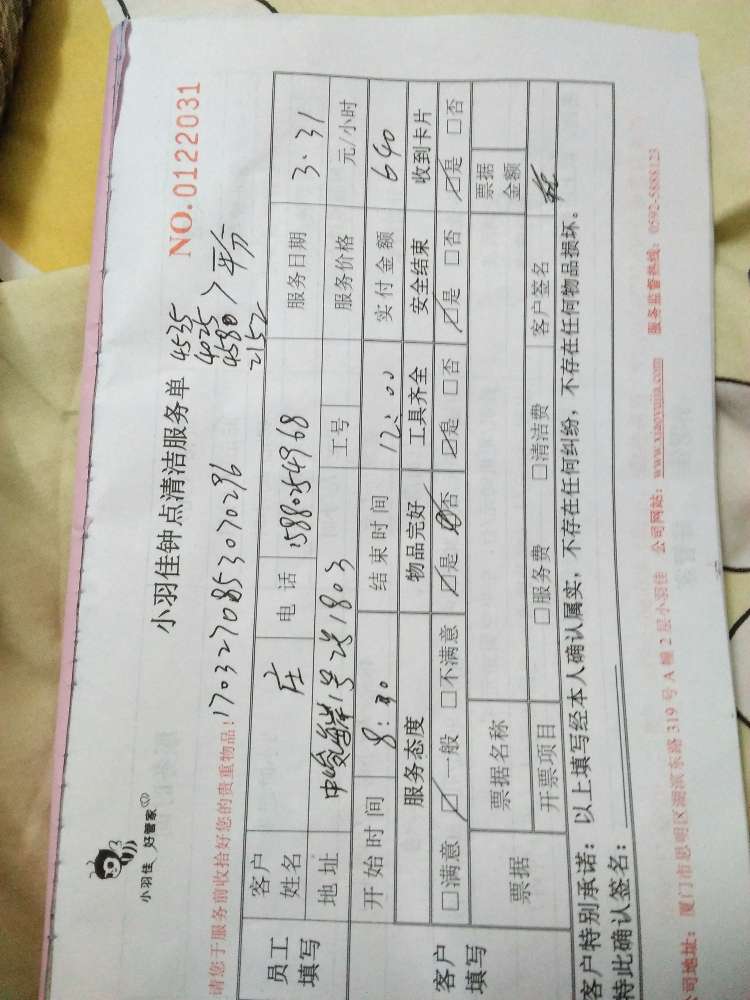 小羽佳 好管家
小羽佳钟点清洁服务单
NO.0122031
4535
4025
4580 > 平分
2152
请您于服务前收拾好您的贵重物品! 1703270853070296
员工填写 客户姓名 庄 电话 15880254968 服务日期 3.31
地址 1号 1803 工号 服务价格 元/小时
客户填写 开始时间 8:30 结束时间 12:00 实付金额 640
服务态度 物品完好 工具齐全 安全结束 收到卡片
□满意 ☑一般 □不满意 ☑是 ☑否 ☑是 □否 ☑是 □否 ☑是 □否
票据 票据名称 票据金额
开票项目 □服务费 □清洁费 客户签名
客户特别承诺:以上填写经本人确认属实,不存在任何纠纷,不存在任何物品损坏。
特此确认签名:
司地址:厦门市思明区湖滨东路319号A幢2层小羽佳 公司网站:www.xiaoyujia.com 服务监督热线:0592-5888123